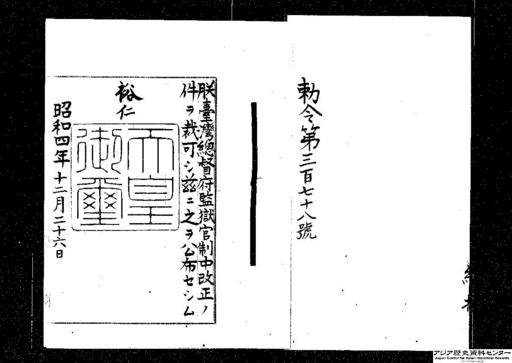 勅令第三百七十八號
朕臺灣總督府監獄官制中改正ノ
件ヲ裁可シ茲ニ之ヲ公布セシム
裕仁
天皇
御璽
昭和四年十二月二十六日
アジア歴史資料センター
Japan Center for Asian Historical Records